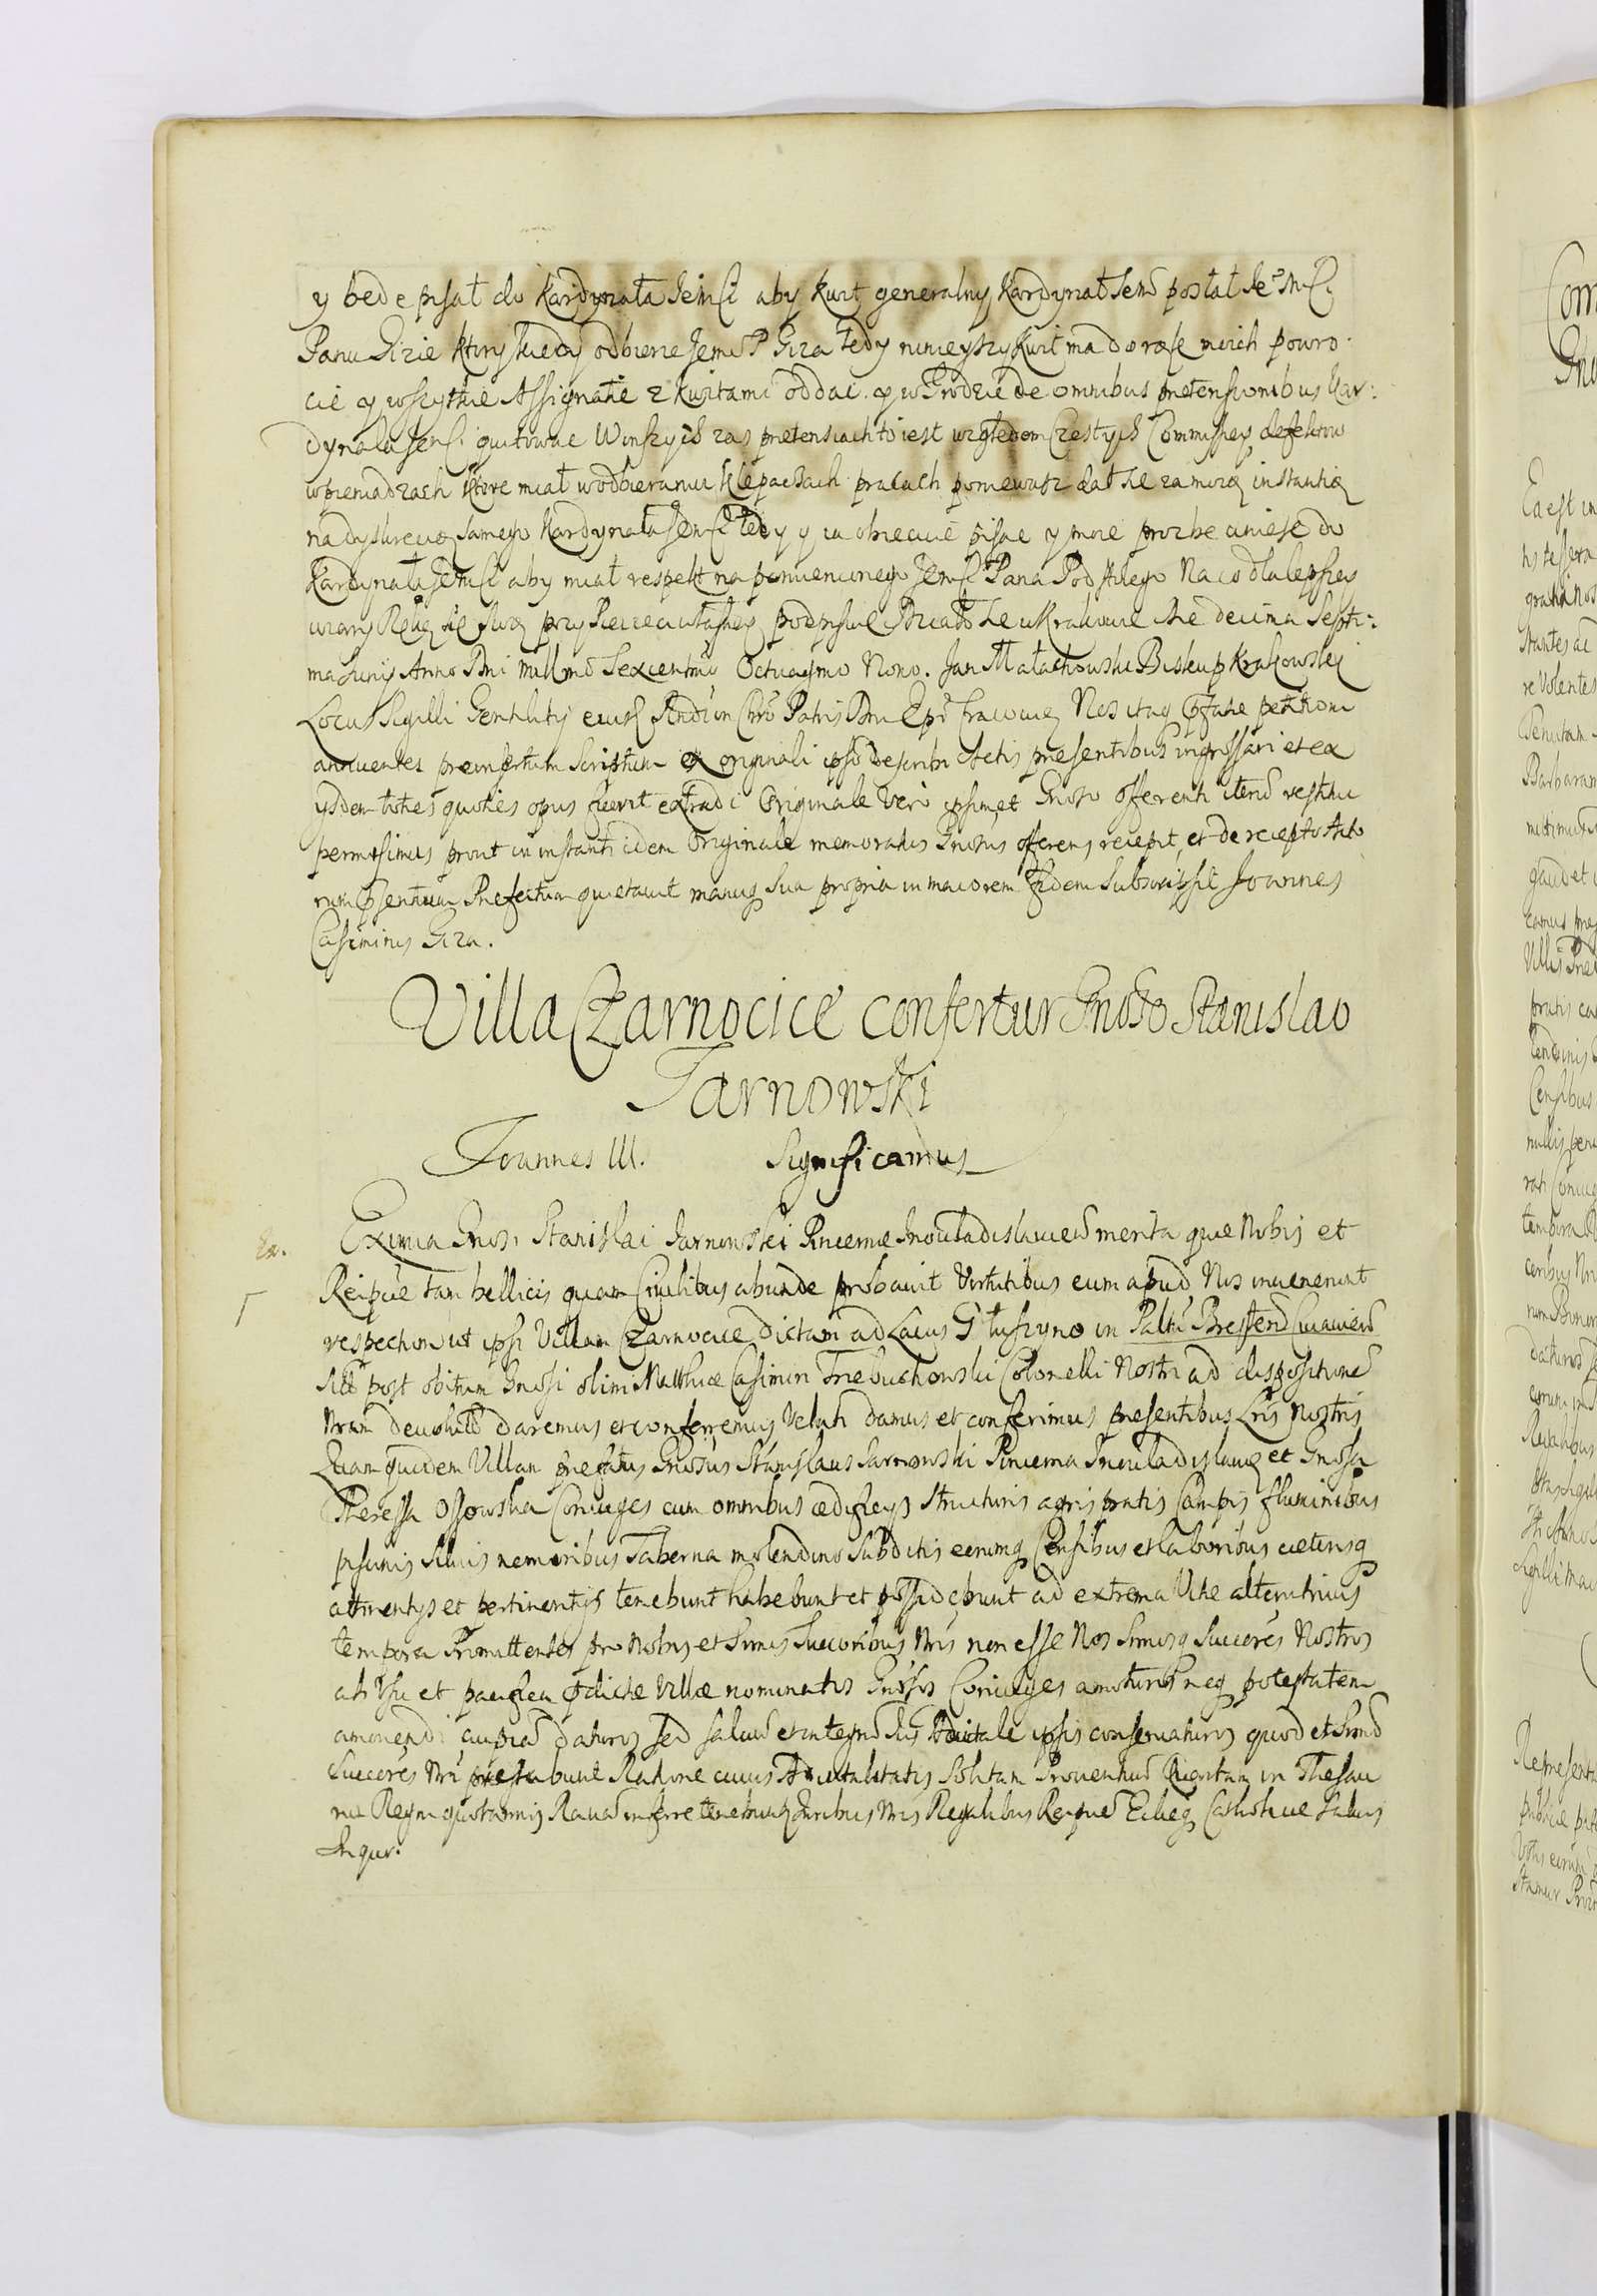 y bede pisał do Kardynała Jemści aby kwit generalny Kardynał Jemś posłał Je° Mści
Panu Gizie ktory kiedy odbierze Jemść P Giza tedy ninieyszy kwit ma do rąk moich powro-
cic y wszytkie Assignatie z kwitami oddac. y w Grodzie de omnibus pretensionibus Kar:
dynała Jemści quitowac W inszych zas pretensiach to iest względem czestych Commissyey defektow
w pieniadzach ktore miał w odbieraniu Klepaczach pracach poniewasz dał sie za moią instantią
na dyskrecią samego Kardynała Jemści tedy y ia obiecuie pisac y moie prozbe wniesc do
Kardynała Jemści aby miał respekt na pomienionego Jemści Pana Podstolego Na co dla lepszey
wiary Ręką się swą przy Pieczęci własney podpisuie Działo sie w Krakowie die decima septi:
ma Junij Anno Dni millmo Sexcentmo Octuagsmo Nono. Jan Małachowski Biskup Krakowski
Locus Sigilli Gentilitij eiusd Rndi in Chro Patris Dni Epi Cracovien Nos itaq pfatae petitioni
annuentes preinsertum Scriptum ex originali ipso describi Actis presentibus ingrossari et ex
ysdem toties quoties opus fuerit extradi Originale vero ipsimet Gnoso offerenti iterum restitui
permisimus prout in instanti idem Originale memoratus Gnosus offerens recepit, et de recepto Acto
rum psentium Prefectum quietavit manuq sua propria in maiorem fidem subscripsit Joannes
Casimirus Giza.
Villa Czarnocice confertur Gnoso Stanislao
Jarnowski
Joannes III. Significamus
Ex. Eximia Gnosi Stanislai Jarnowski Pincernae Inowladislavien merita quae Nobis et
Reipcae tam bellicis quam Civilibus abunde probavit Virtutibus eum apud Nos invenerunt
respectum ut ipsi Villam Czarnocice dictam ad Lacus Głuszyno in Paltu Bresten Cuiavien
sitam post obitum Gnosi olim Matthiae Casimiri Trebuchowski Colonelli Nostri ad dispositionem
Nram devolutam daremus et conferremus Veluti damus et conferimus presentibus Lris Nostris
Quam quidem Villam prefatus Gnosus Stanislaus Jarnowski Pincerna Inowladislavien et Gnosa
Theressa Ossowska Coniuges cum omnibus aedificys structuris agris pratis Campis fluminibus
piscinis silvis nemoribus Taberna molendino subditis eorumq Censibus et laboribus caeterisq
attinentys et pertinentijs tenebunt habebunt et possidebunt ad extrema Vitae alterutrius
tempora Promittentes pro Nobis et Srmis Successoribus Nris non esse Nos Srmosq Succores Nostros
ab Usu et pacifica pdictae Villae nominatos Gnosos Coniuges amoturos neq potestatem
amovendi cuipiam daturos sed salvum et integrum Jus Advitale ipsis conservaturos quod et Srmi
Succores Nri prestabunt Ratione cuius Advitalitatis Solitam Proventum Quartam in Thesau
rum Regni quotannis Ravam inferre tenebunt Juribus Nris Regalibus Reipcae Eccleq Catholicae salvis
In qur.